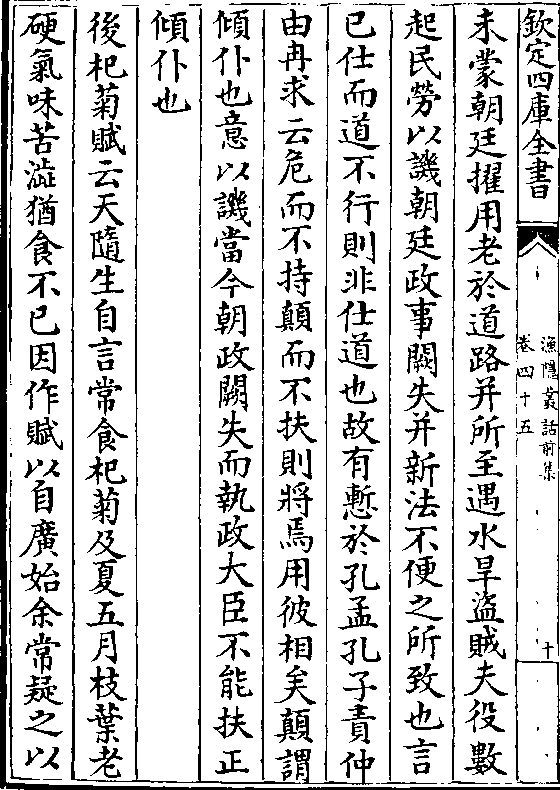 欽定四庫全書
漁隱叢話前集
卷四十五
十
未蒙朝廷擢用老於道路并所至遇水旱盜賊夫役數
起民勞以譏朝廷政事闕失并新法不便之所致也言
已仕而道不行則非仕道也故有慙於孔孟孔子責仲
由冉求云危而不持顛而不扶則將焉用彼相矣顛謂
傾仆也意以譏當今朝政闕失而執政大臣不能扶正
傾仆也
後杞菊賦云天隨生自言常食杞菊及夏五月枝葉老
硬氣味苦澁猶食不已因作賦以自廣始余常疑之以